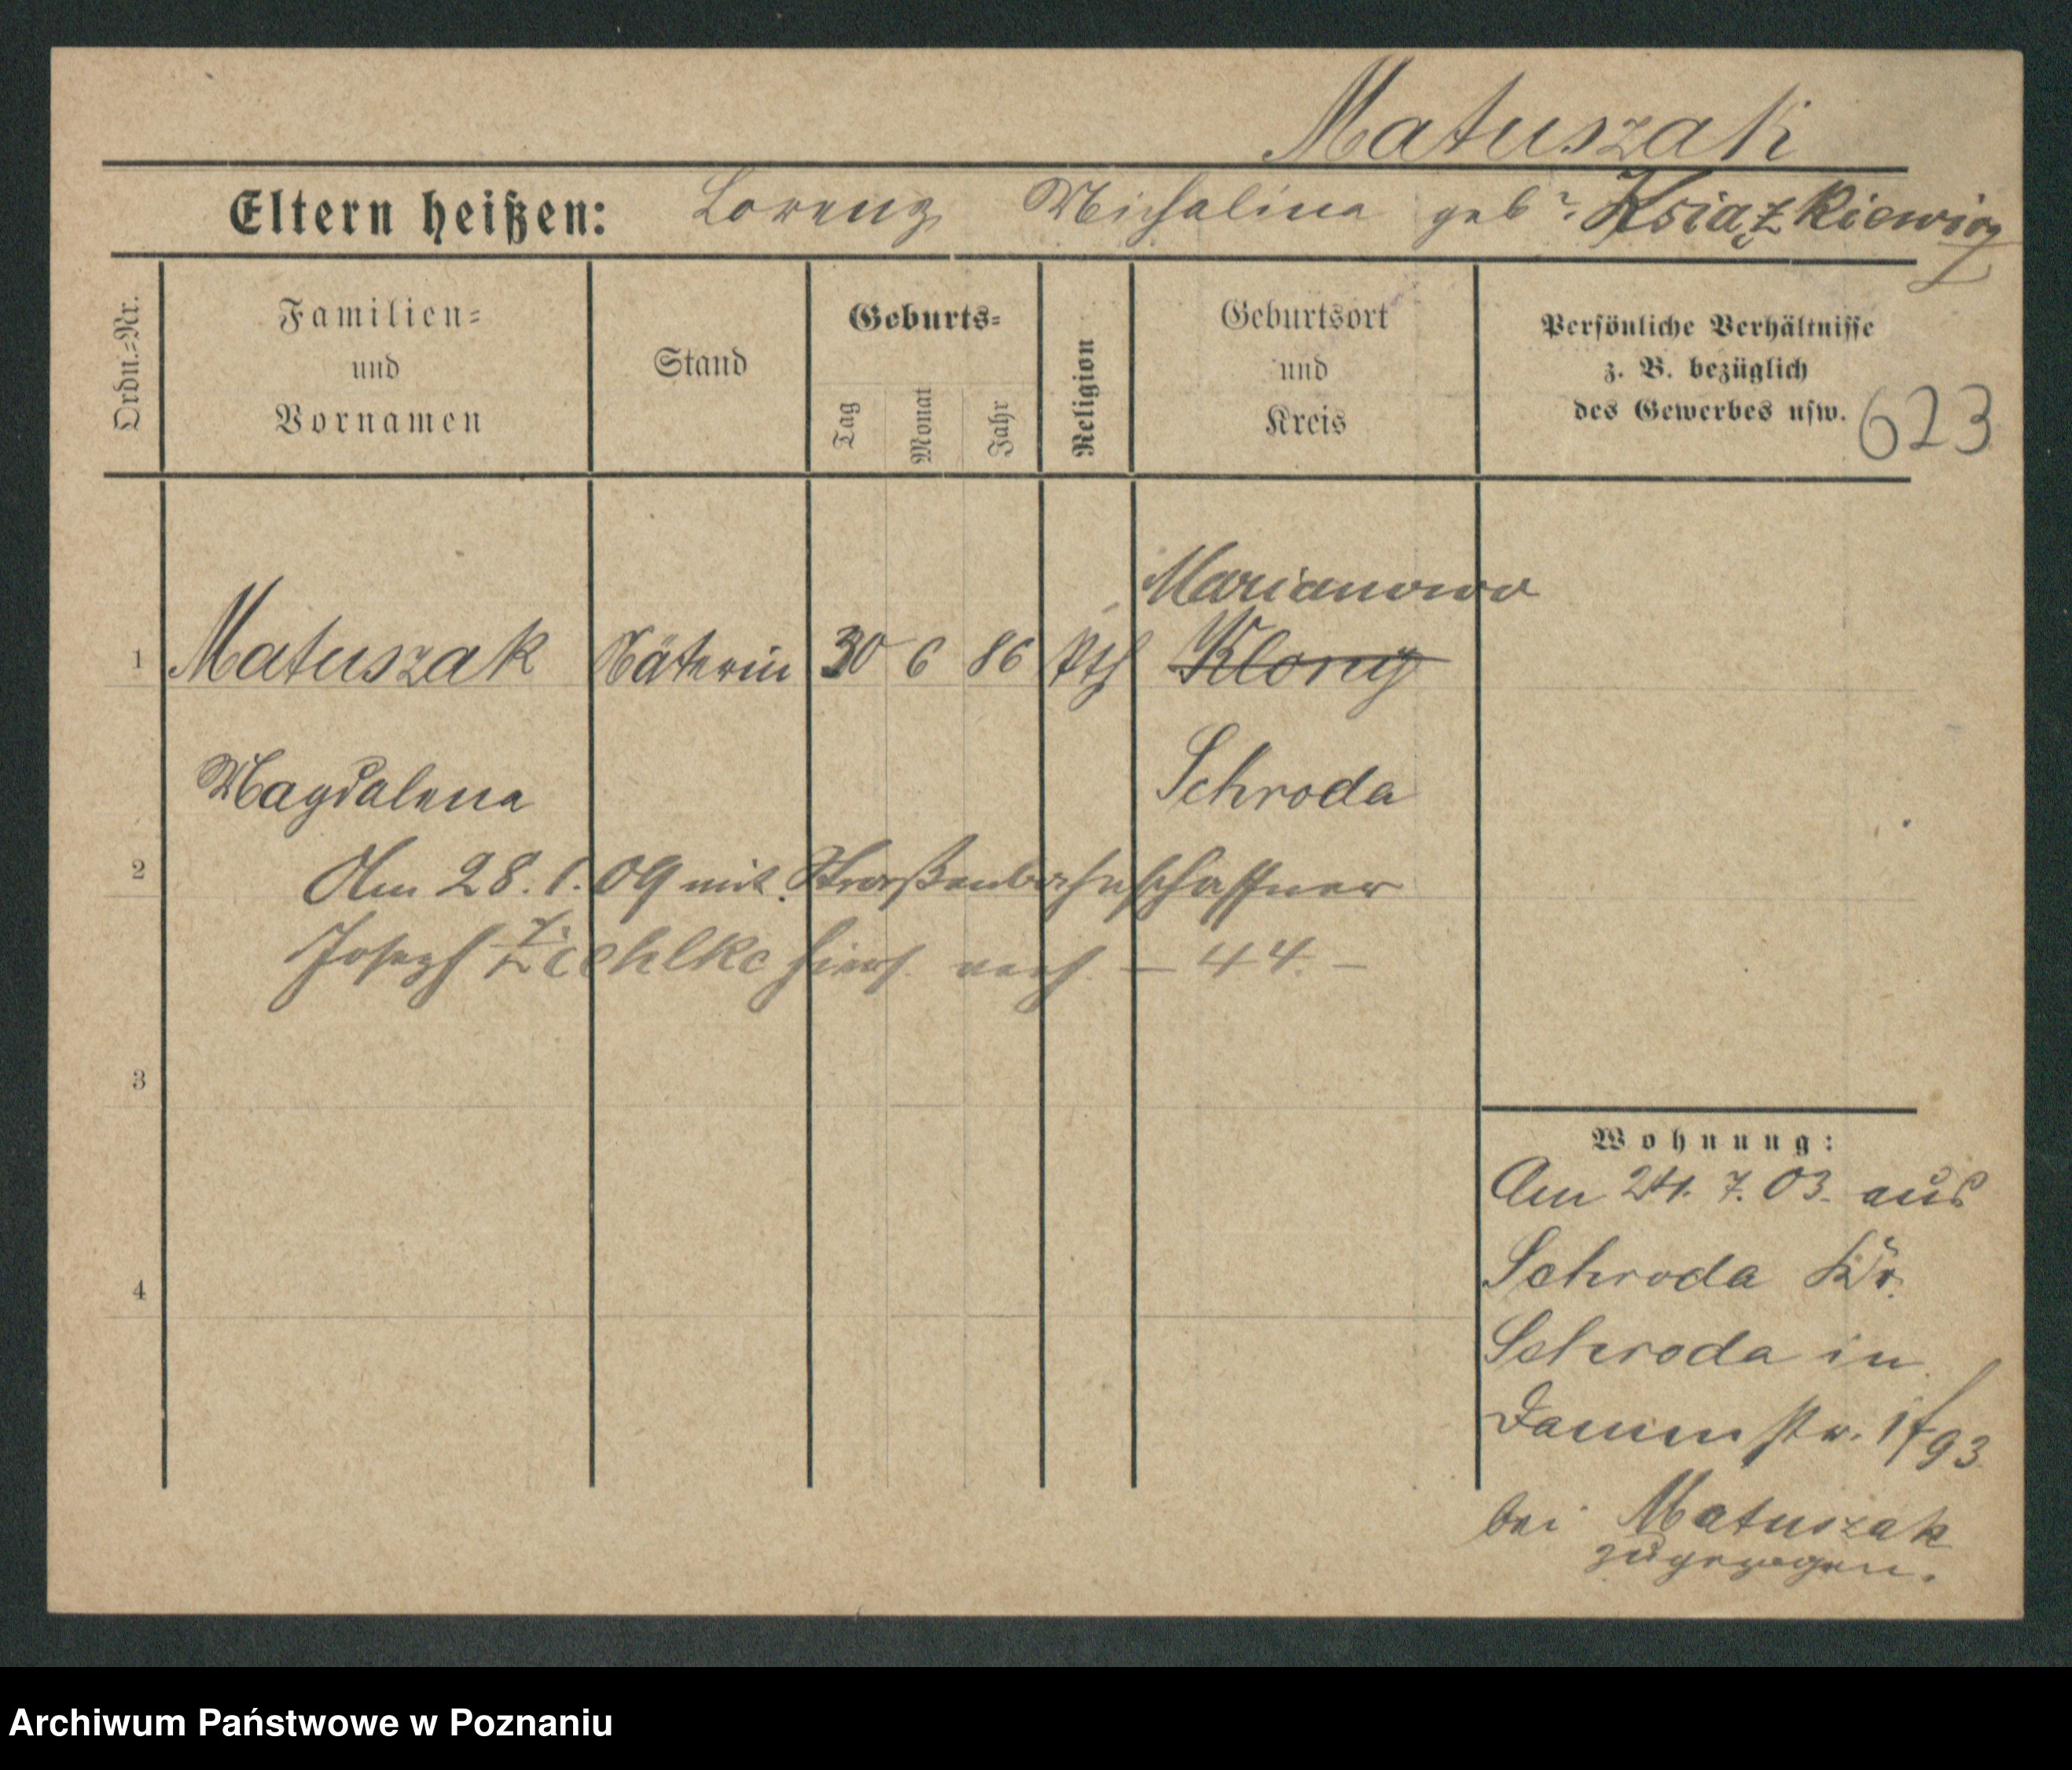 Matuszak
Eltern heißen: Lorenz Michalina geb. Książkiewicz
Ordn.=Nr.
Familien=
und
Vornamen
Stand
Geburts=
Tag
Monat
Jahr
Religion
Geburtsort
und
Kreis
Persönliche Verhältnisse
z. B. bezüglich
des Gewerbes usw.
623
Marianowo
1 Matuszak Näterin 30 6 86 kth Klony
Magdalena Schroda
2 Am 28. 1. 09 mit Straßenbahnschaffner
Joseph hiers. verh. - 44. -
3
4
Wohnung:
Am 24. 7. 03. aus
Schroda Kr.
Schroda in
Dammstr. 1 f/93
bei Matuszak
zugezogen.
Archiwum Państwowe w Poznaniu